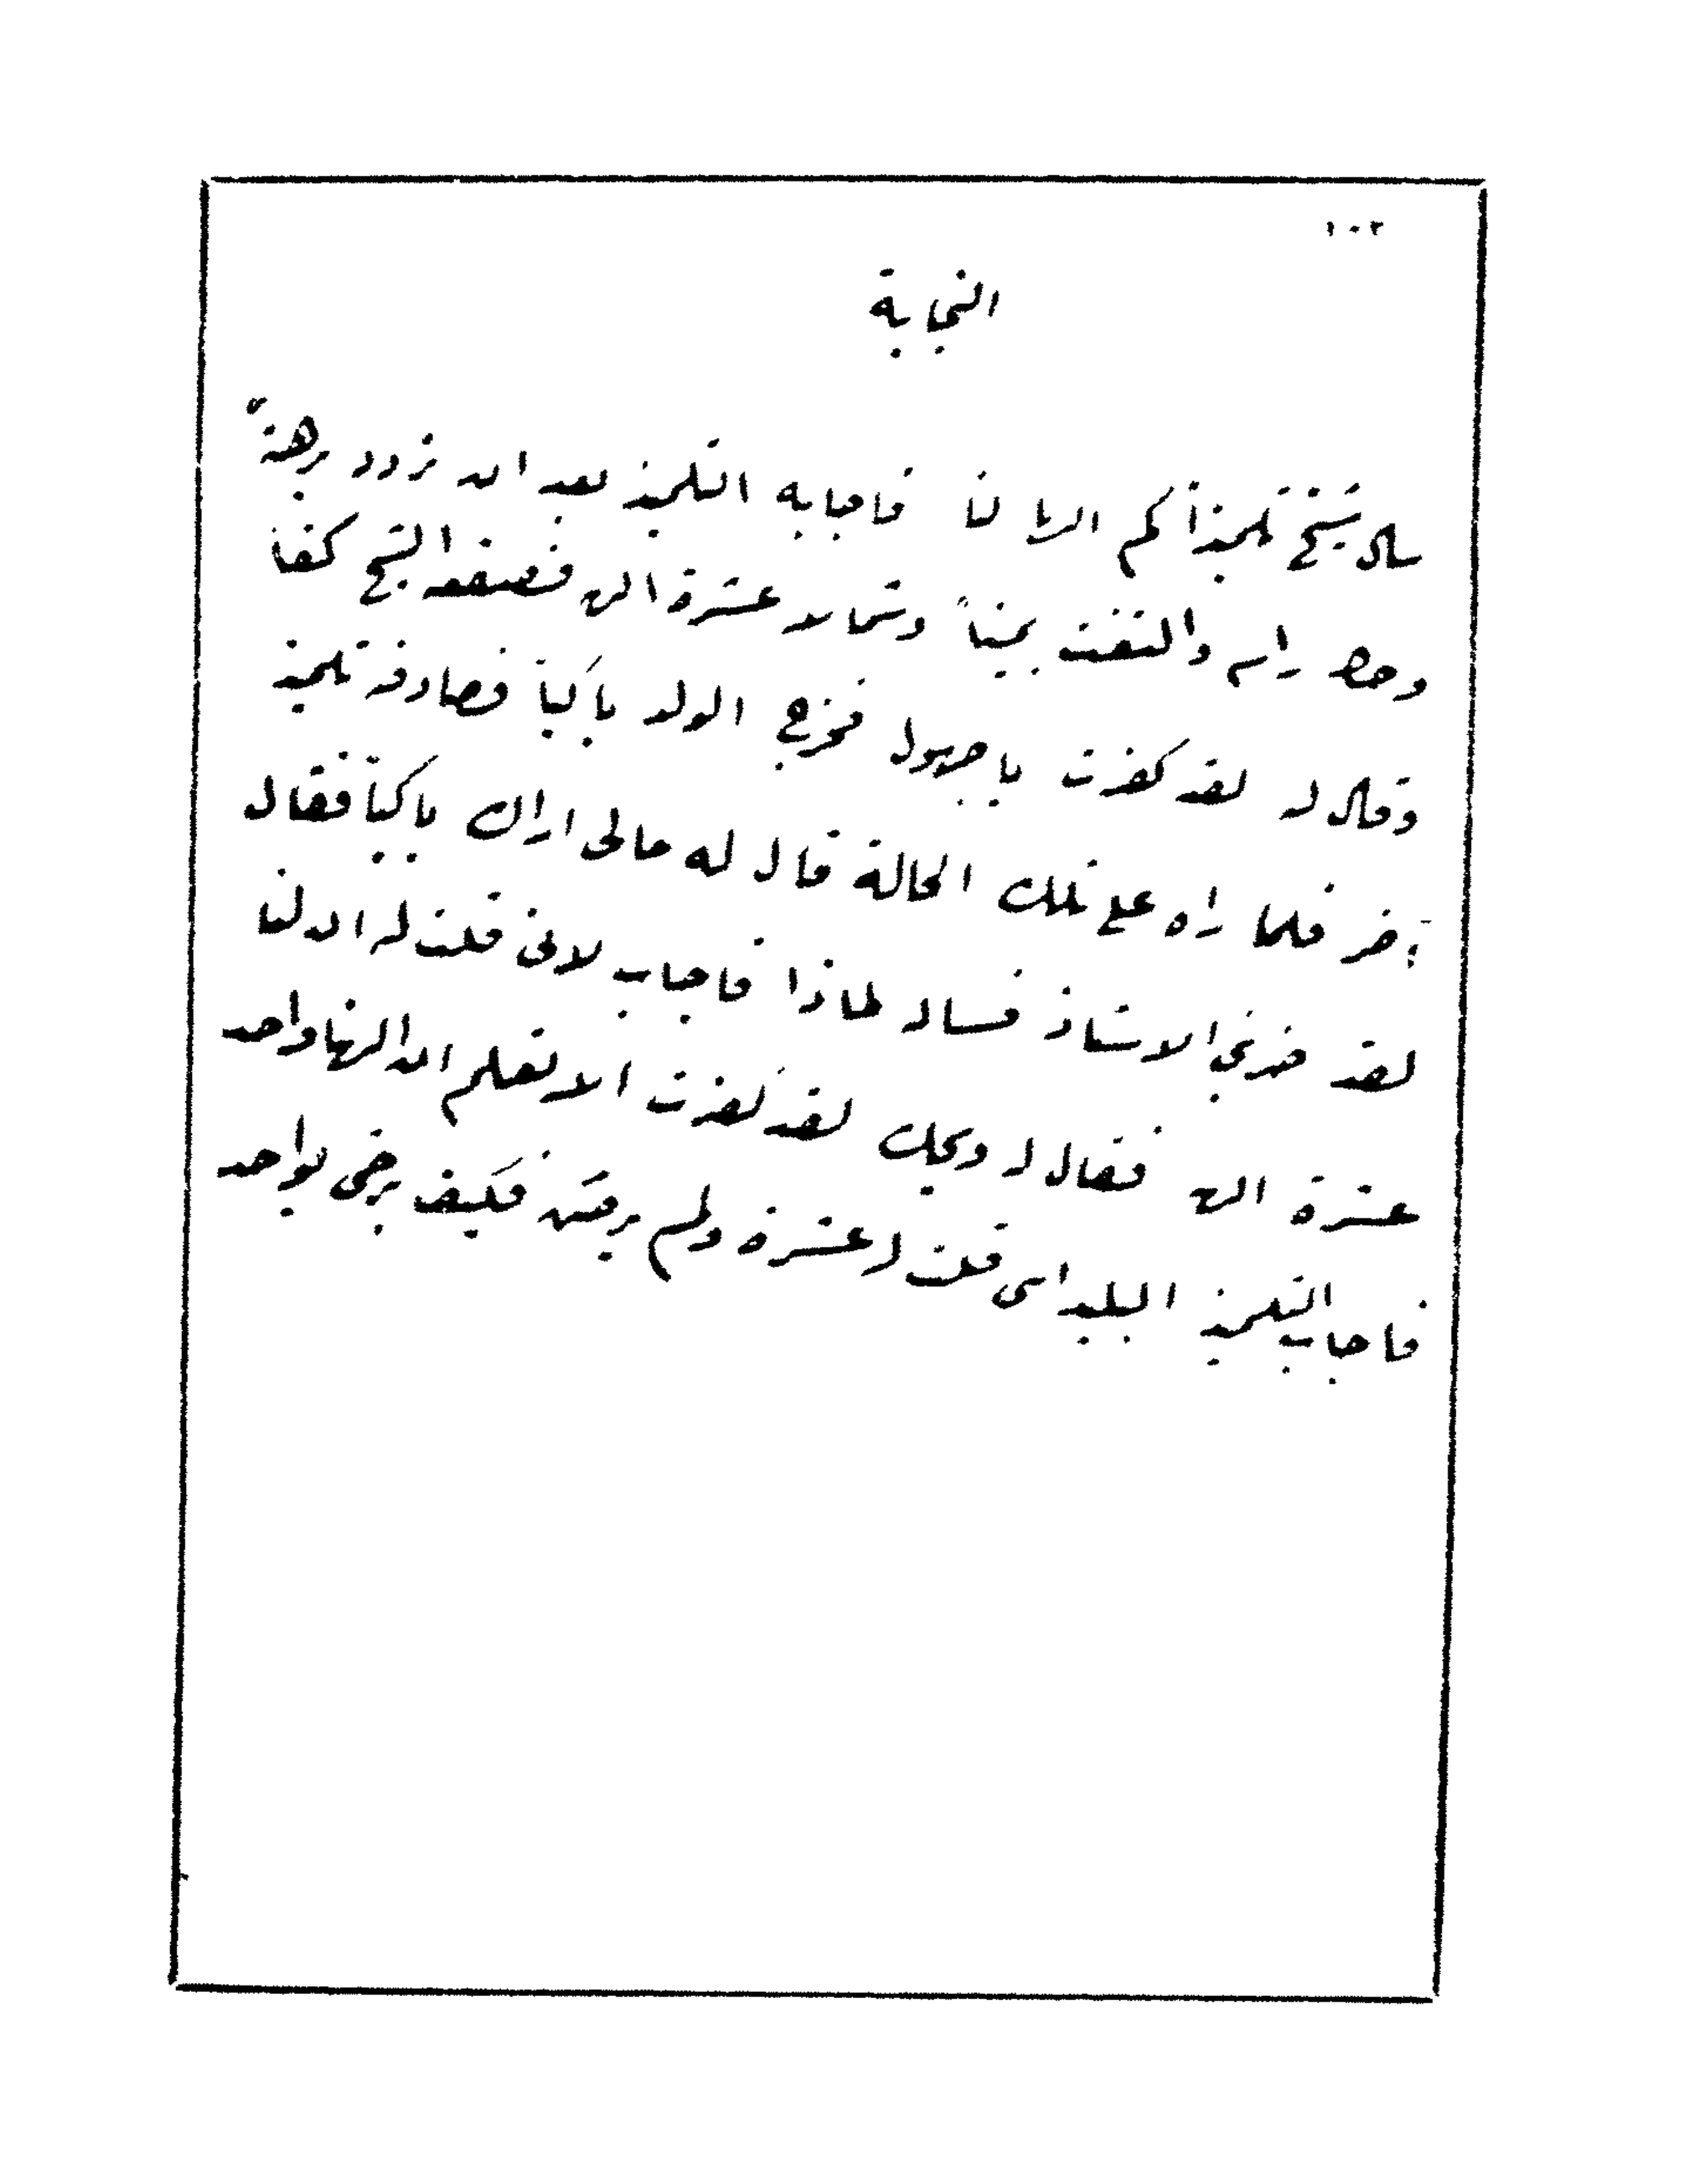 ١٠٢
النجابة
سال شيخ تلميذاً كم الاهاً لنا فاجابه التلميذ بعد ان تردد برهةً
وحك راسه والتفت يميناً وشمالا عشرة الهه فصفعه الشيخ كفاً
وقال له لقد كفرت يا جهول فخرج الولد باكياً فصادفه تلميذ
آخر فلما راه على تلك الحالة قال له مالى اراك باكياً فقال
لقد ضربني الاستاذ فساله لماذا فاجاب لانى قلت له ان لنا
عشرة الهه فقال له ويحك لقد كفرت الا تعلم ان الهنا واحد
فاجاب التلميذ البليد انى قلت له عشرة ولم يرضى فكيف يرضى بواحد